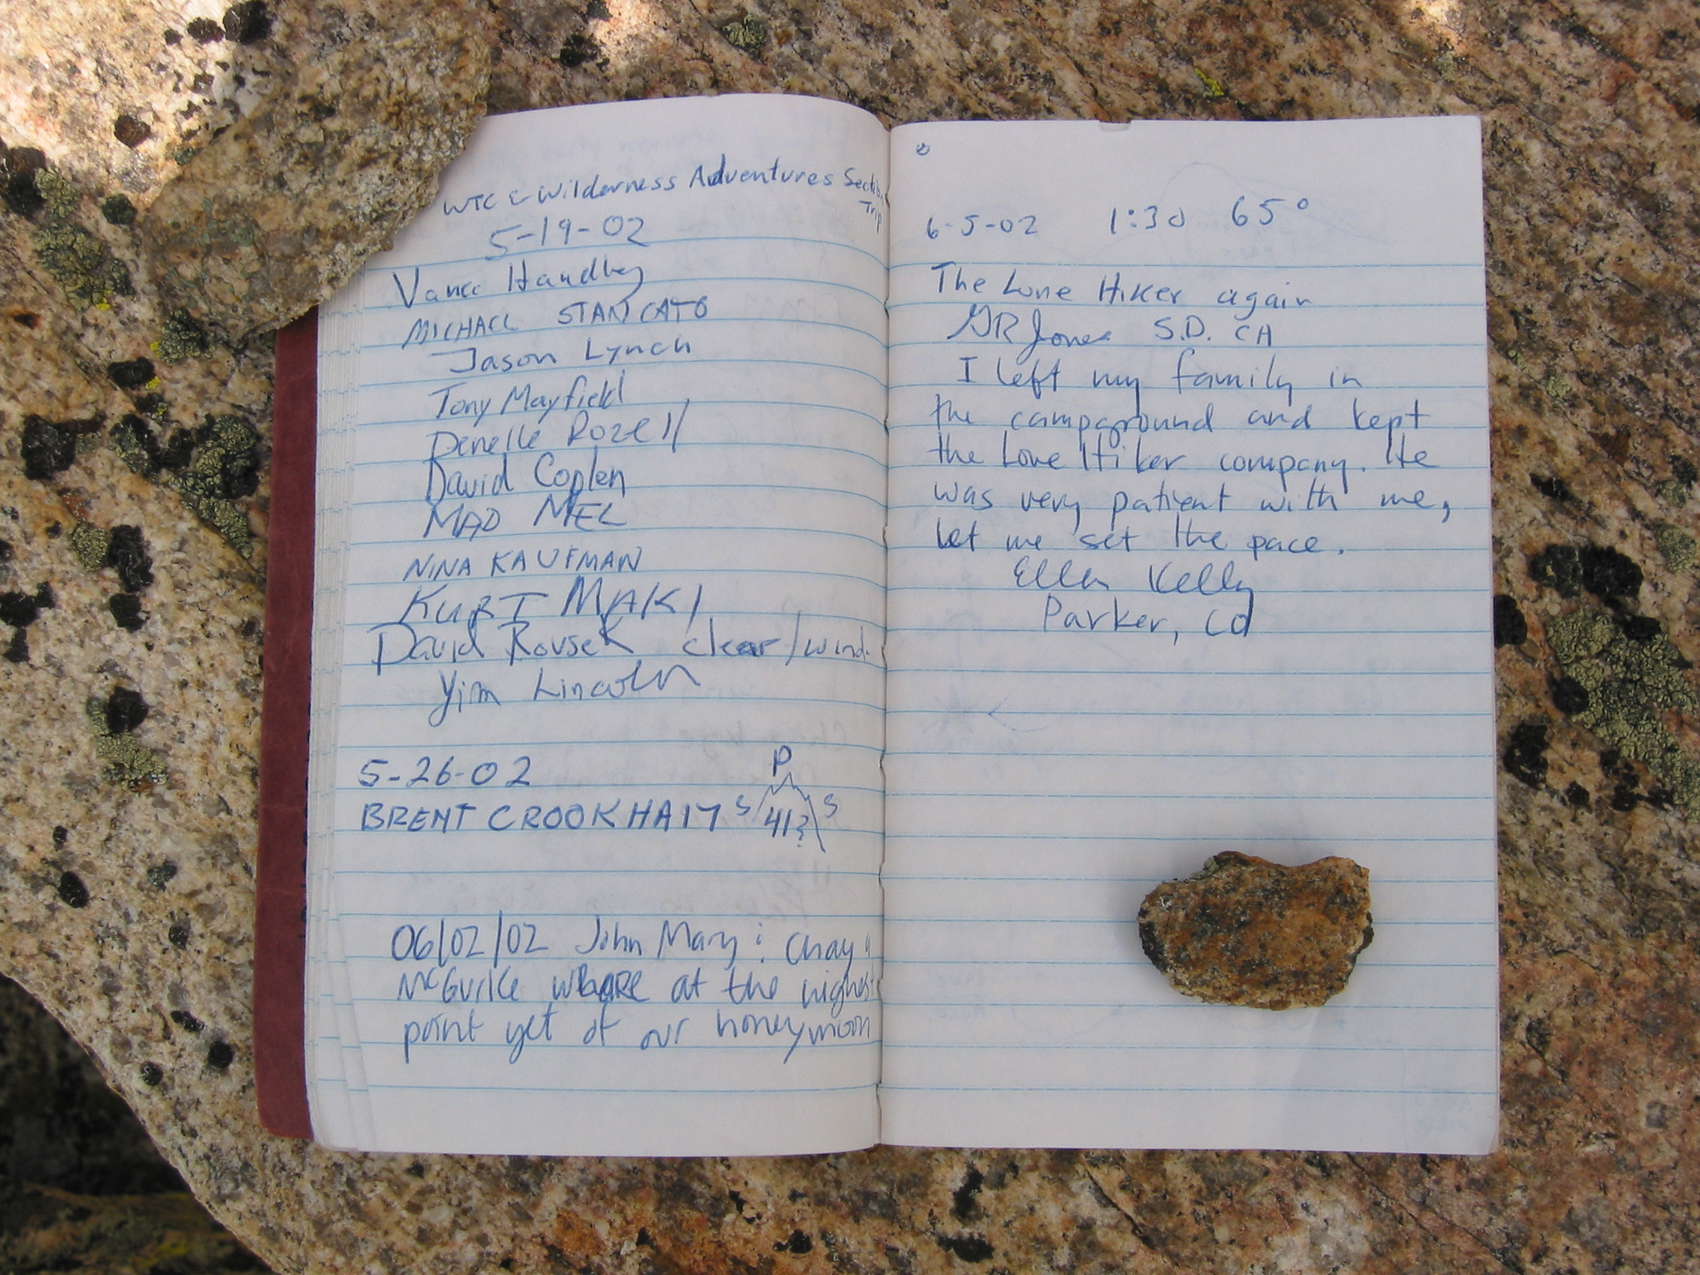 WTC & Wilderness Adventures Section
Trip
5-19-02
Vance Handley
MICHAEL STANCATO
Jason Lynch
Tony Mayfield
Denelle Rozell
David Coplen
MAD MEL
NINA KAUFMAN
KURT MAKI
David Rousek clear/wind.
Jim Lincoln
5-26-02
P
BRENT CROOKHAIT S 41? S
06/02/02 John Mary & Chay
McGuike whare at the highest
point yet of our honeymoon
6-5-02 1:30 65°
The Lone Hiker again
GR Jones S.D. CA
I left my family in
the campground and kept
the Lone Hiker company. He
was very patient with me,
let me set the pace.
Ellen Kelly
Parker, CO